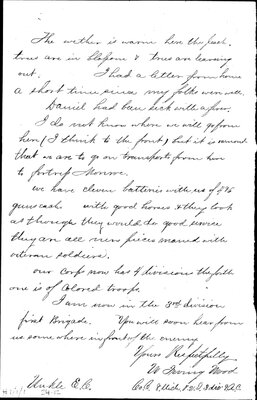 The wether is warm here the peach
trees are in blossom & trees are leaving
out. I had a letter from home
a short time since my folks were well.
Daniel had been sick with a fever.
I do not know where we will go from
here (I think to the front) but it is rumored
that we are to go on transports from here
to fortres Monroe.
we have eleven batteries with us of
guns each with good horses & they look
as though they would do good service
they are all new pieces maned with
veteran soldiers.
our Corp now has 4 divisions the fourth
one is of Colored troops.
I am now in the 3rd division
first Brigade. You will soon hear from
us some where in front of the enemy
Yours Respectfully
W Irving Wood
Unkle E.C.
Co. A 8 Mich 1st B 3 div 9 A.C.